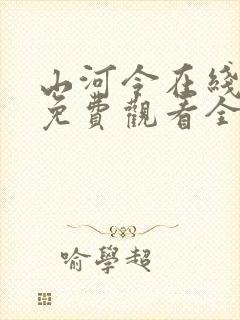 山河令在线
免費觀看全
喻學超